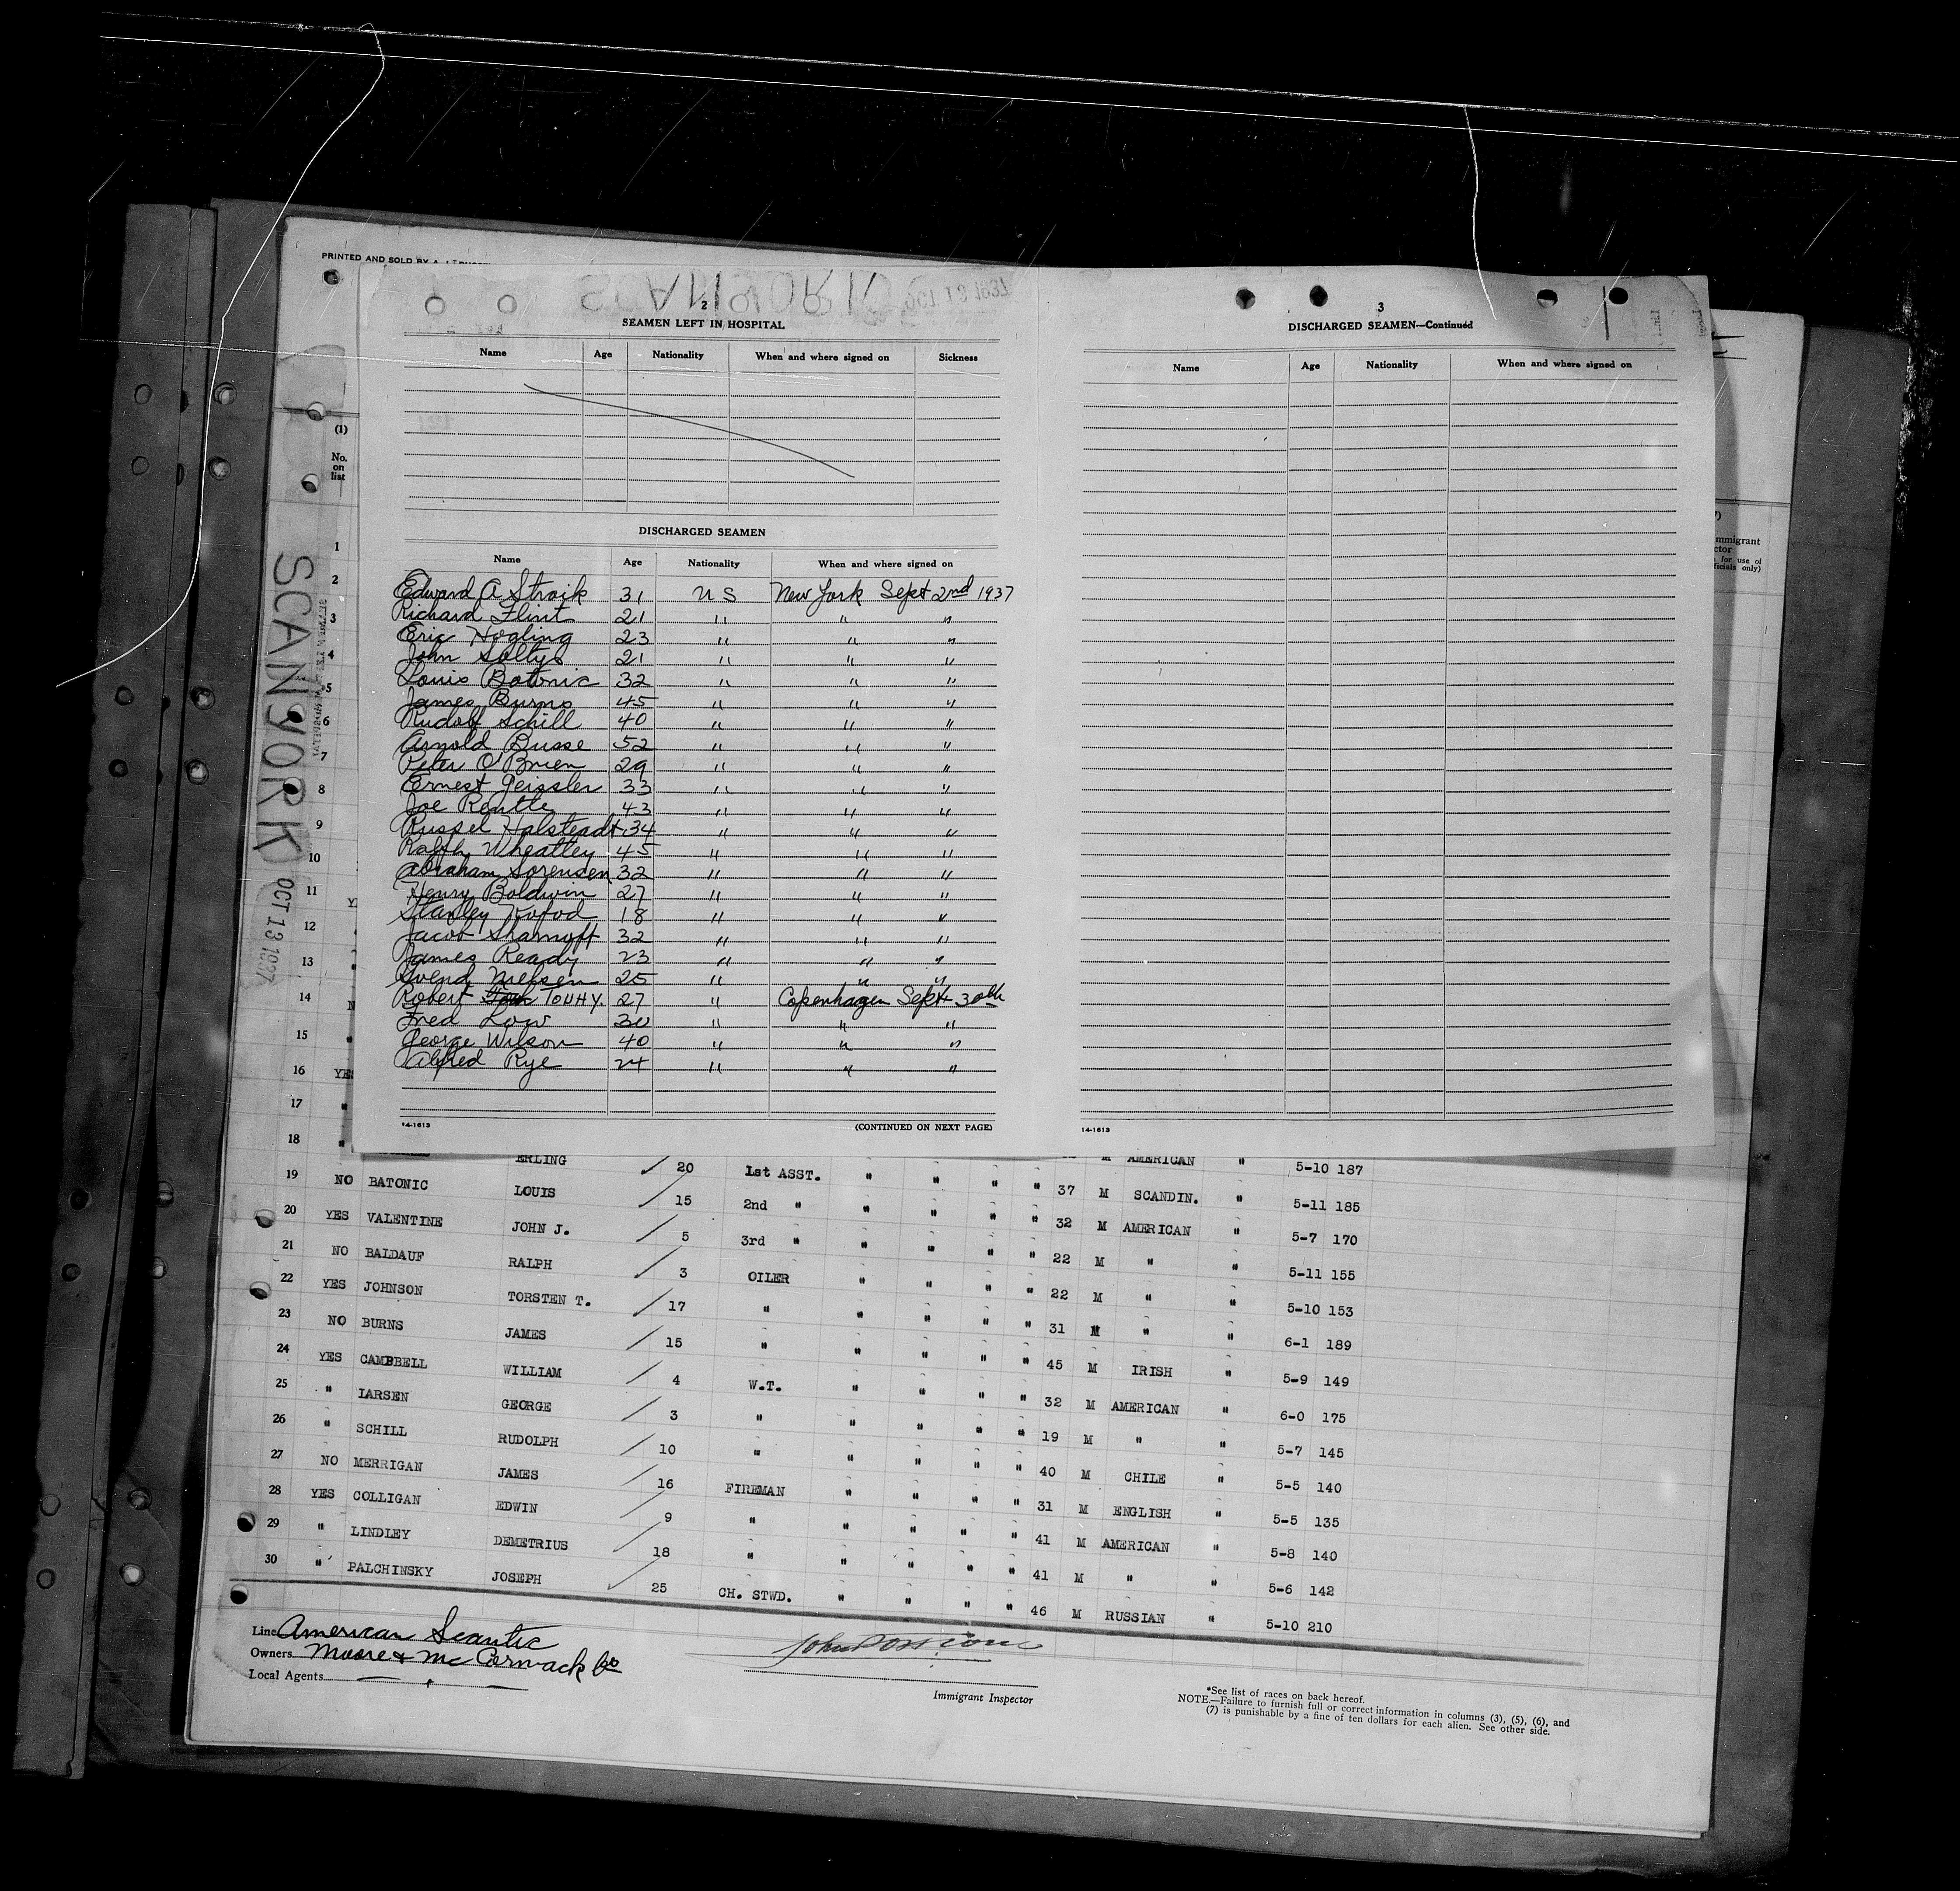 PRINTED AND SOLD BY
2
SEAMEN LEFT IN HOSPITAL
Name Age Nationality When and where signed on Sickness
DISCHARGED SEAMEN
Name Age Nationality When and where signed on
Edward A Straik 31 US New York Sept 2nd 1937
Richard Flint 21 " " "
Eric Hogling 23 " " "
John Soltys 21 " " "
Louis Batonic 32 " " "
James Burns 45 " " "
Rudolf Schill 40 " " "
Arnold Busse 52 " " "
Peter O'Brien 29 " " "
Ernest Geissler 33 " " "
Joe Rentle 43 " " "
Russel Halsteadt 34 " " "
Ralph Wheatley 45 " " "
Abraham Sorensen 32 " " "
Henry Baldwin 27 " " "
Stanley Kofod 18 " " "
Jacob Sharnoff 32 " " "
James Ready 23 " " "
Svend Nielsen 25 " " "
Robert TOUHY. 27 " Copenhagen Sept 30th
Fred Low 30 " " "
George Wilson 40 " " "
Alfred Rye 24 " " "
14-1613 (CONTINUED ON NEXT PAGE)
3
DISCHARGED SEAMEN—Continued
Name Age Nationality When and where signed on
14-1613
(1)
No.
on
list
1
2
3
4
5
6
7
8
9
10
11
12
13
14
15
16 YES
17 "
18 "
SCANYORK
OCT 13 1937
mmigrant
ctor
for use of
ficials only)
M AMERICAN " 5-10 187
ERLING 20 1st ASST. " " " " 37 M SCANDIN. " 5-11 185
19 NO BATONIC LOUIS 15 2nd " " " " " 32 M AMERICAN " 5-7 170
20 YES VALENTINE JOHN J. 5 3rd " " " " " 22 M " " 5-11 155
21 NO BALDAUF RALPH 3 OILER " " " " 22 M " " 5-10 153
22 YES JOHNSON TORSTEN T. 17 " " " " " 31 M " " 6-1 189
23 NO BURNS JAMES 15 " " " " " 45 M IRISH " 5-9 149
24 YES CAMPBELL WILLIAM 4 W.T. " " " " 32 M AMERICAN " 6-0 175
25 " LARSEN GEORGE 3 " " " " " 19 M " " 5-7 145
26 " SCHILL RUDOLPH 10 " " " " " 40 M CHILE " 5-5 140
27 NO MERRIGAN JAMES 16 FIREMAN " " " " 31 M ENGLISH " 5-5 135
28 YES COLLIGAN EDWIN 9 " " " " " 41 M AMERICAN " 5-8 140
29 " LINDLEY DEMETRIUS 18 " " " " " 41 M " " 5-6 142
30 " PALCHINSKY JOSEPH 25 CH. STWD. " " " " 46 M RUSSIAN " 5-10 210
Line American Scantic
Owners Moore & McCormack Co
Local Agents
Immigrant Inspector
*See list of races on back hereof.
NOTE.—Failure to furnish full or correct information in columns (3), (5), (6), and
(7) is punishable by a fine of ten dollars for each alien. See other side.